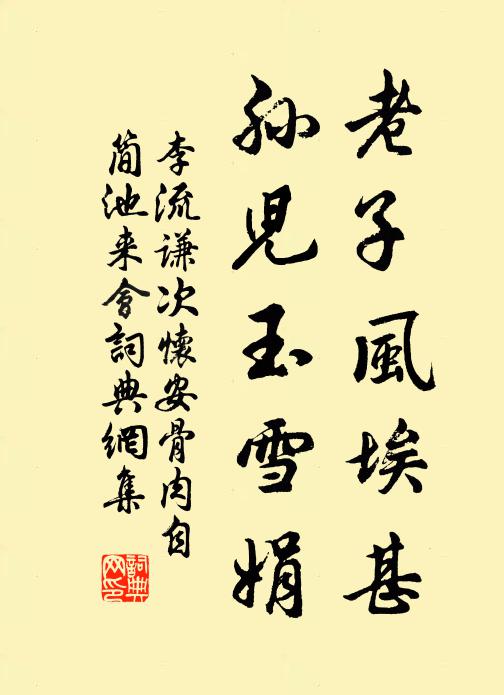 老子風埃甚
孫児玉雪娟
李流谦次懷安骨肉自
简池来會詞典網集
詞典
网印